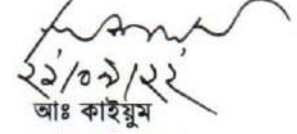 ২১/০৯/২২
আঃ কাইয়ুম